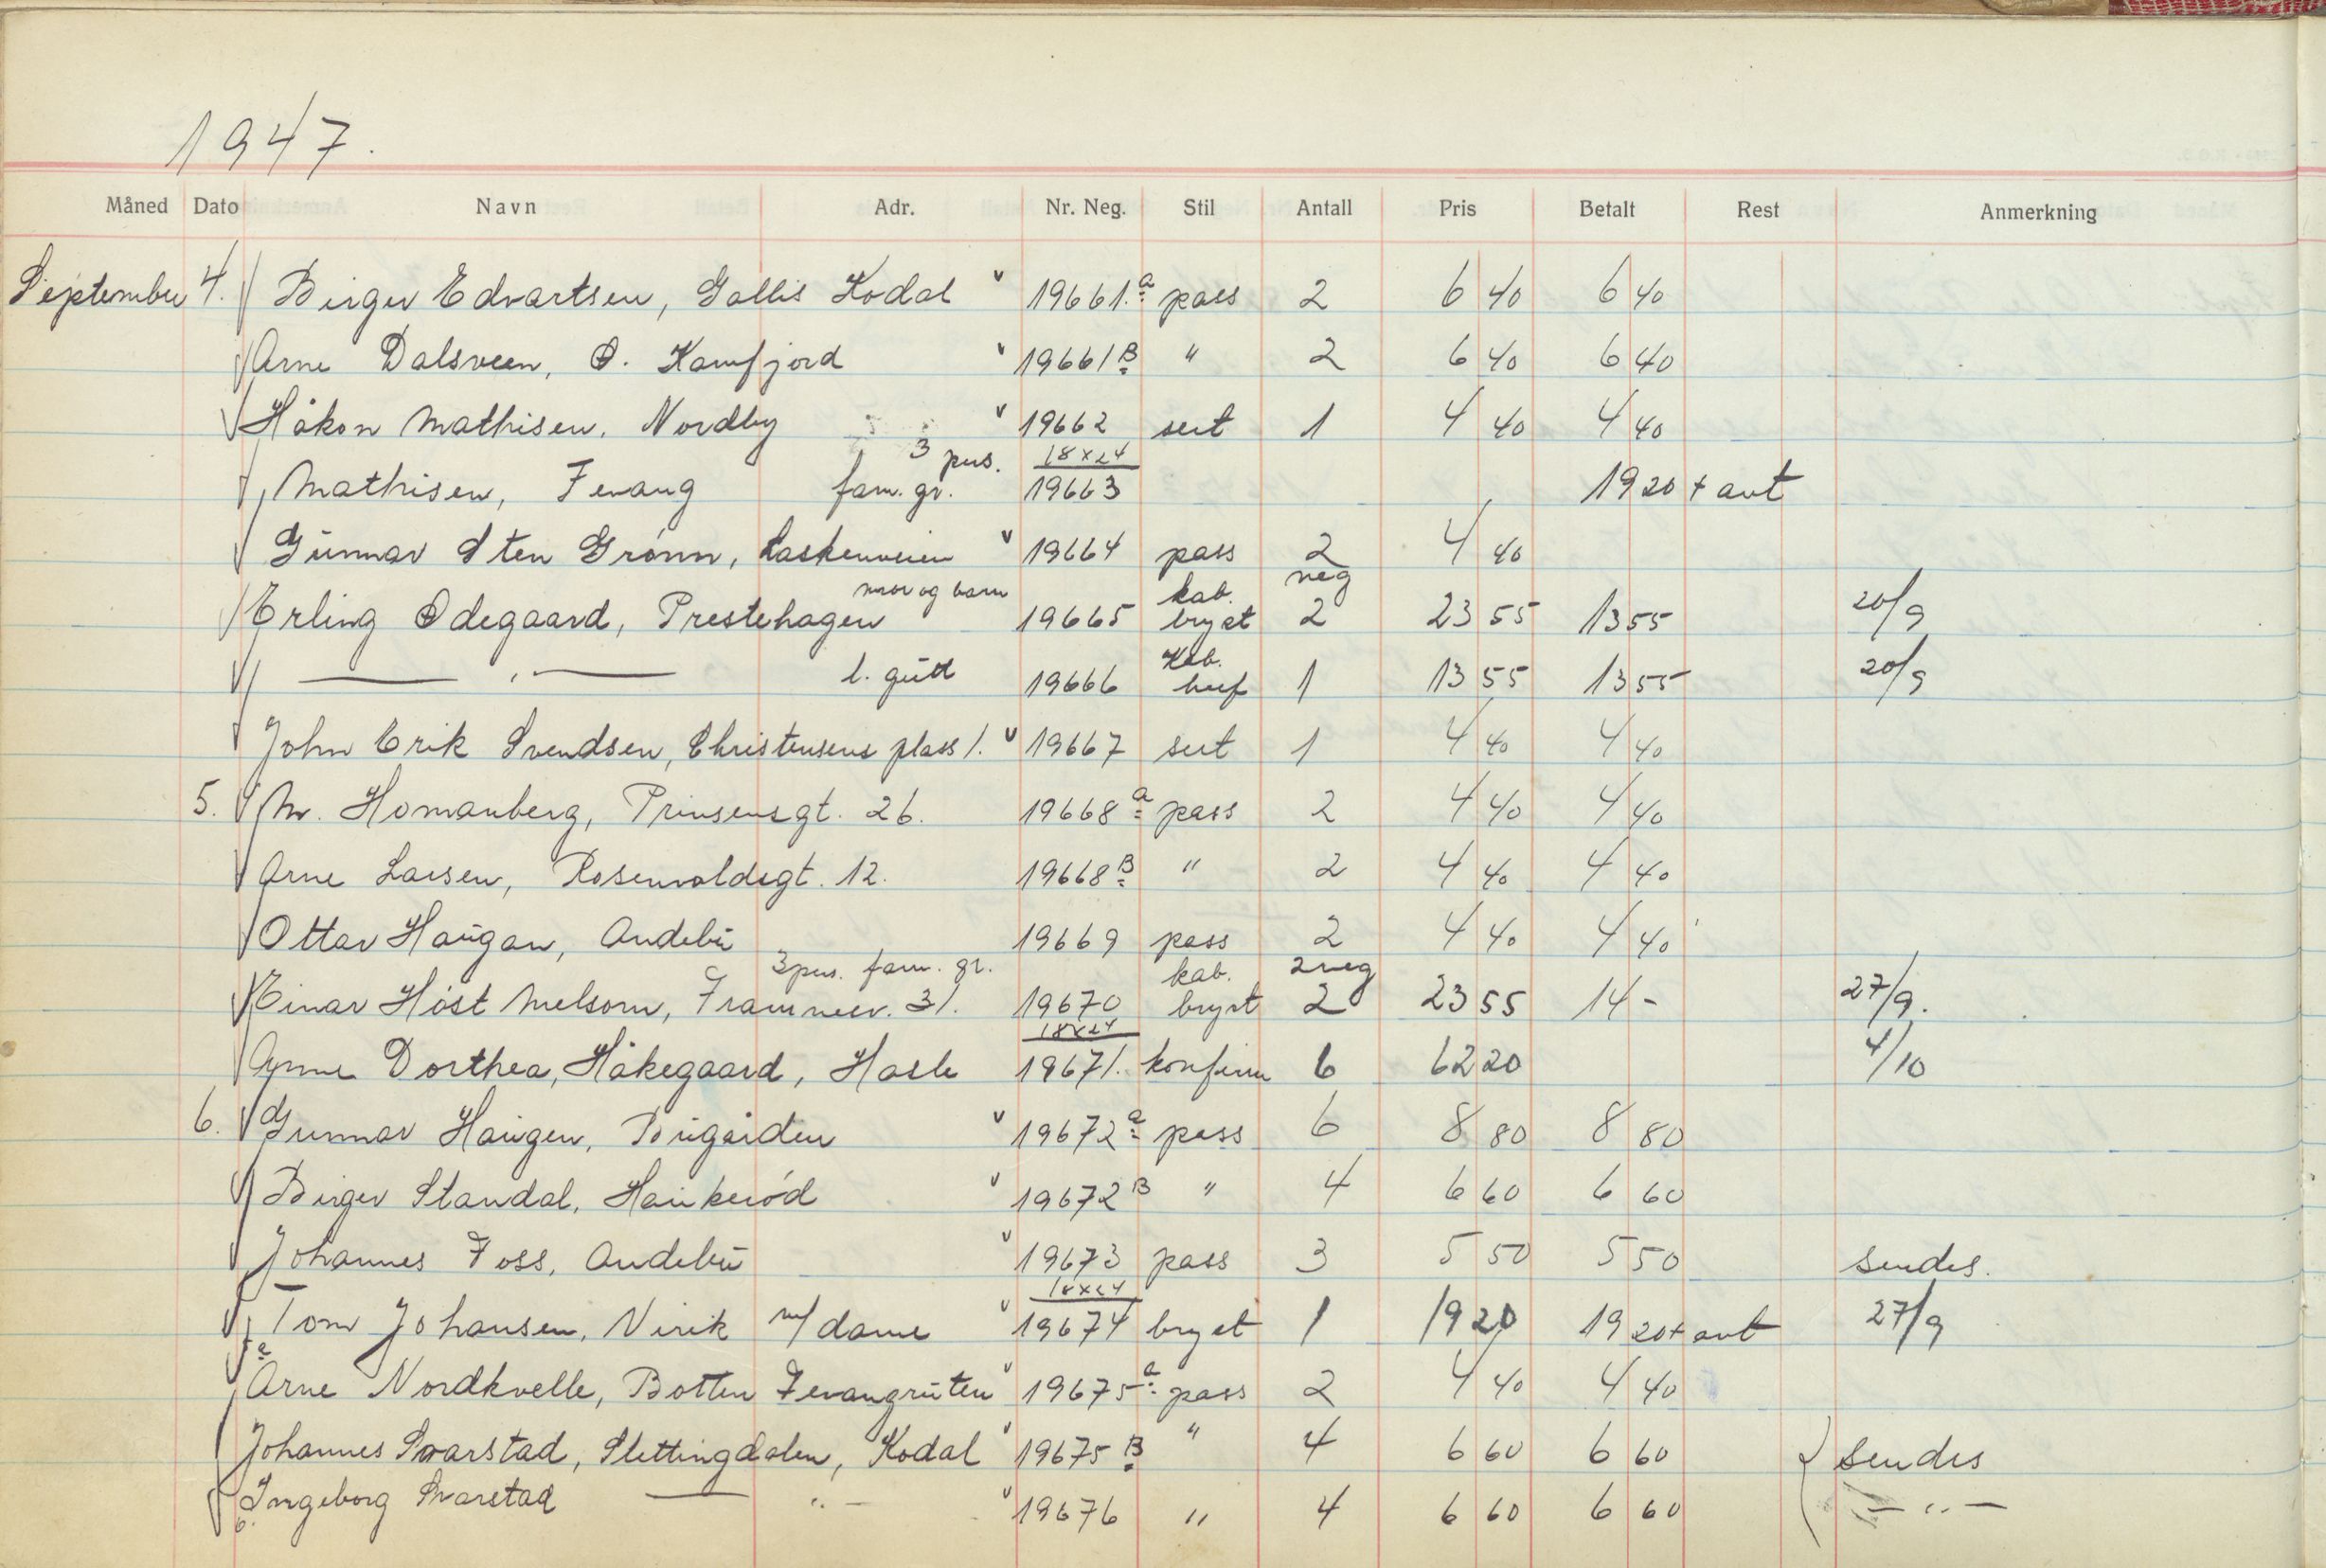 1947.
Måned Dato Navn Adr. Nr. Neg. Stil Antall Pris Betalt Rest Anmerkning
September 4. Birger Edvartsen, Gallis Kodal 19661.a pass 2 6 40 6 40
Arne Dalsveen, Ø. Kamfjord 19661 B " 2 6 40 6 40
Håkon Mathisen, Nordby 19662 sert 1 4 40 4 40
3 pers. 18x24
Mathisen, Fevang fam. gr. 19663 19 20 + avt
Gunnar Sten Grønn, Laskenveien 19664 pass 2 4 40
mor og barn kab. neg
Erling Ødegaard, Prestehagen 19665 bryst 2 23 55 13 55 20/9
— " — l. gutt 19666 Kab. 1 13 55 13 55 20/9
John Erik Svendsen, Christensens plass 1. 19667 sert 1 4 40 4 40
5. M. Homanberg, Prinsensgt. 26. 19668 a pass 2 4 40 4 40
Arne Larsen, Rosenvoldsgt. 12. 19668 B " 2 4 40 4 40
Ottar Haugan, Andebu 19669 pass 2 4 40 4 40
3 pers. fam. gr. kab. 2 neg
Einar Høst Melsom, Framnesv. 31. 19670 bryst 2 23 55 14 - 27/9.
18x24
Anne Dorthea, Håkegaard, Hasle 19671. konfirm 6 62 20 4/10
6. Gunnar Haugen, Bugården 19672 a pass 6 8 80 8 80
Birger Standal, Haukerød 19672 B " 4 6 60 6 60
Johannes Foss, Andebu 19673 pass 3 5 50 5 50 sendes.
18x24
Tom Johansen, Virik m/dame 19674 bryst 1 19 20 19 20 + avt 27/9
Arne Nordkvelle, Botten Fevangruten 19675 a pass 2 4 40 4 40
Johannes Svarstad, Slettingdalen, Kodal 19675 B " 4 6 60 6 60 sendes
Ingeborg Svarstad — " — 19676 " 4 6 60 6 60 — " —